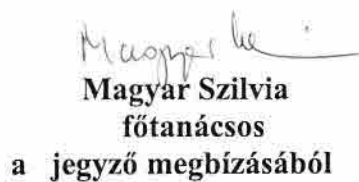 Magyar Szilvia
főtanácsos
a jegyző megbízásából